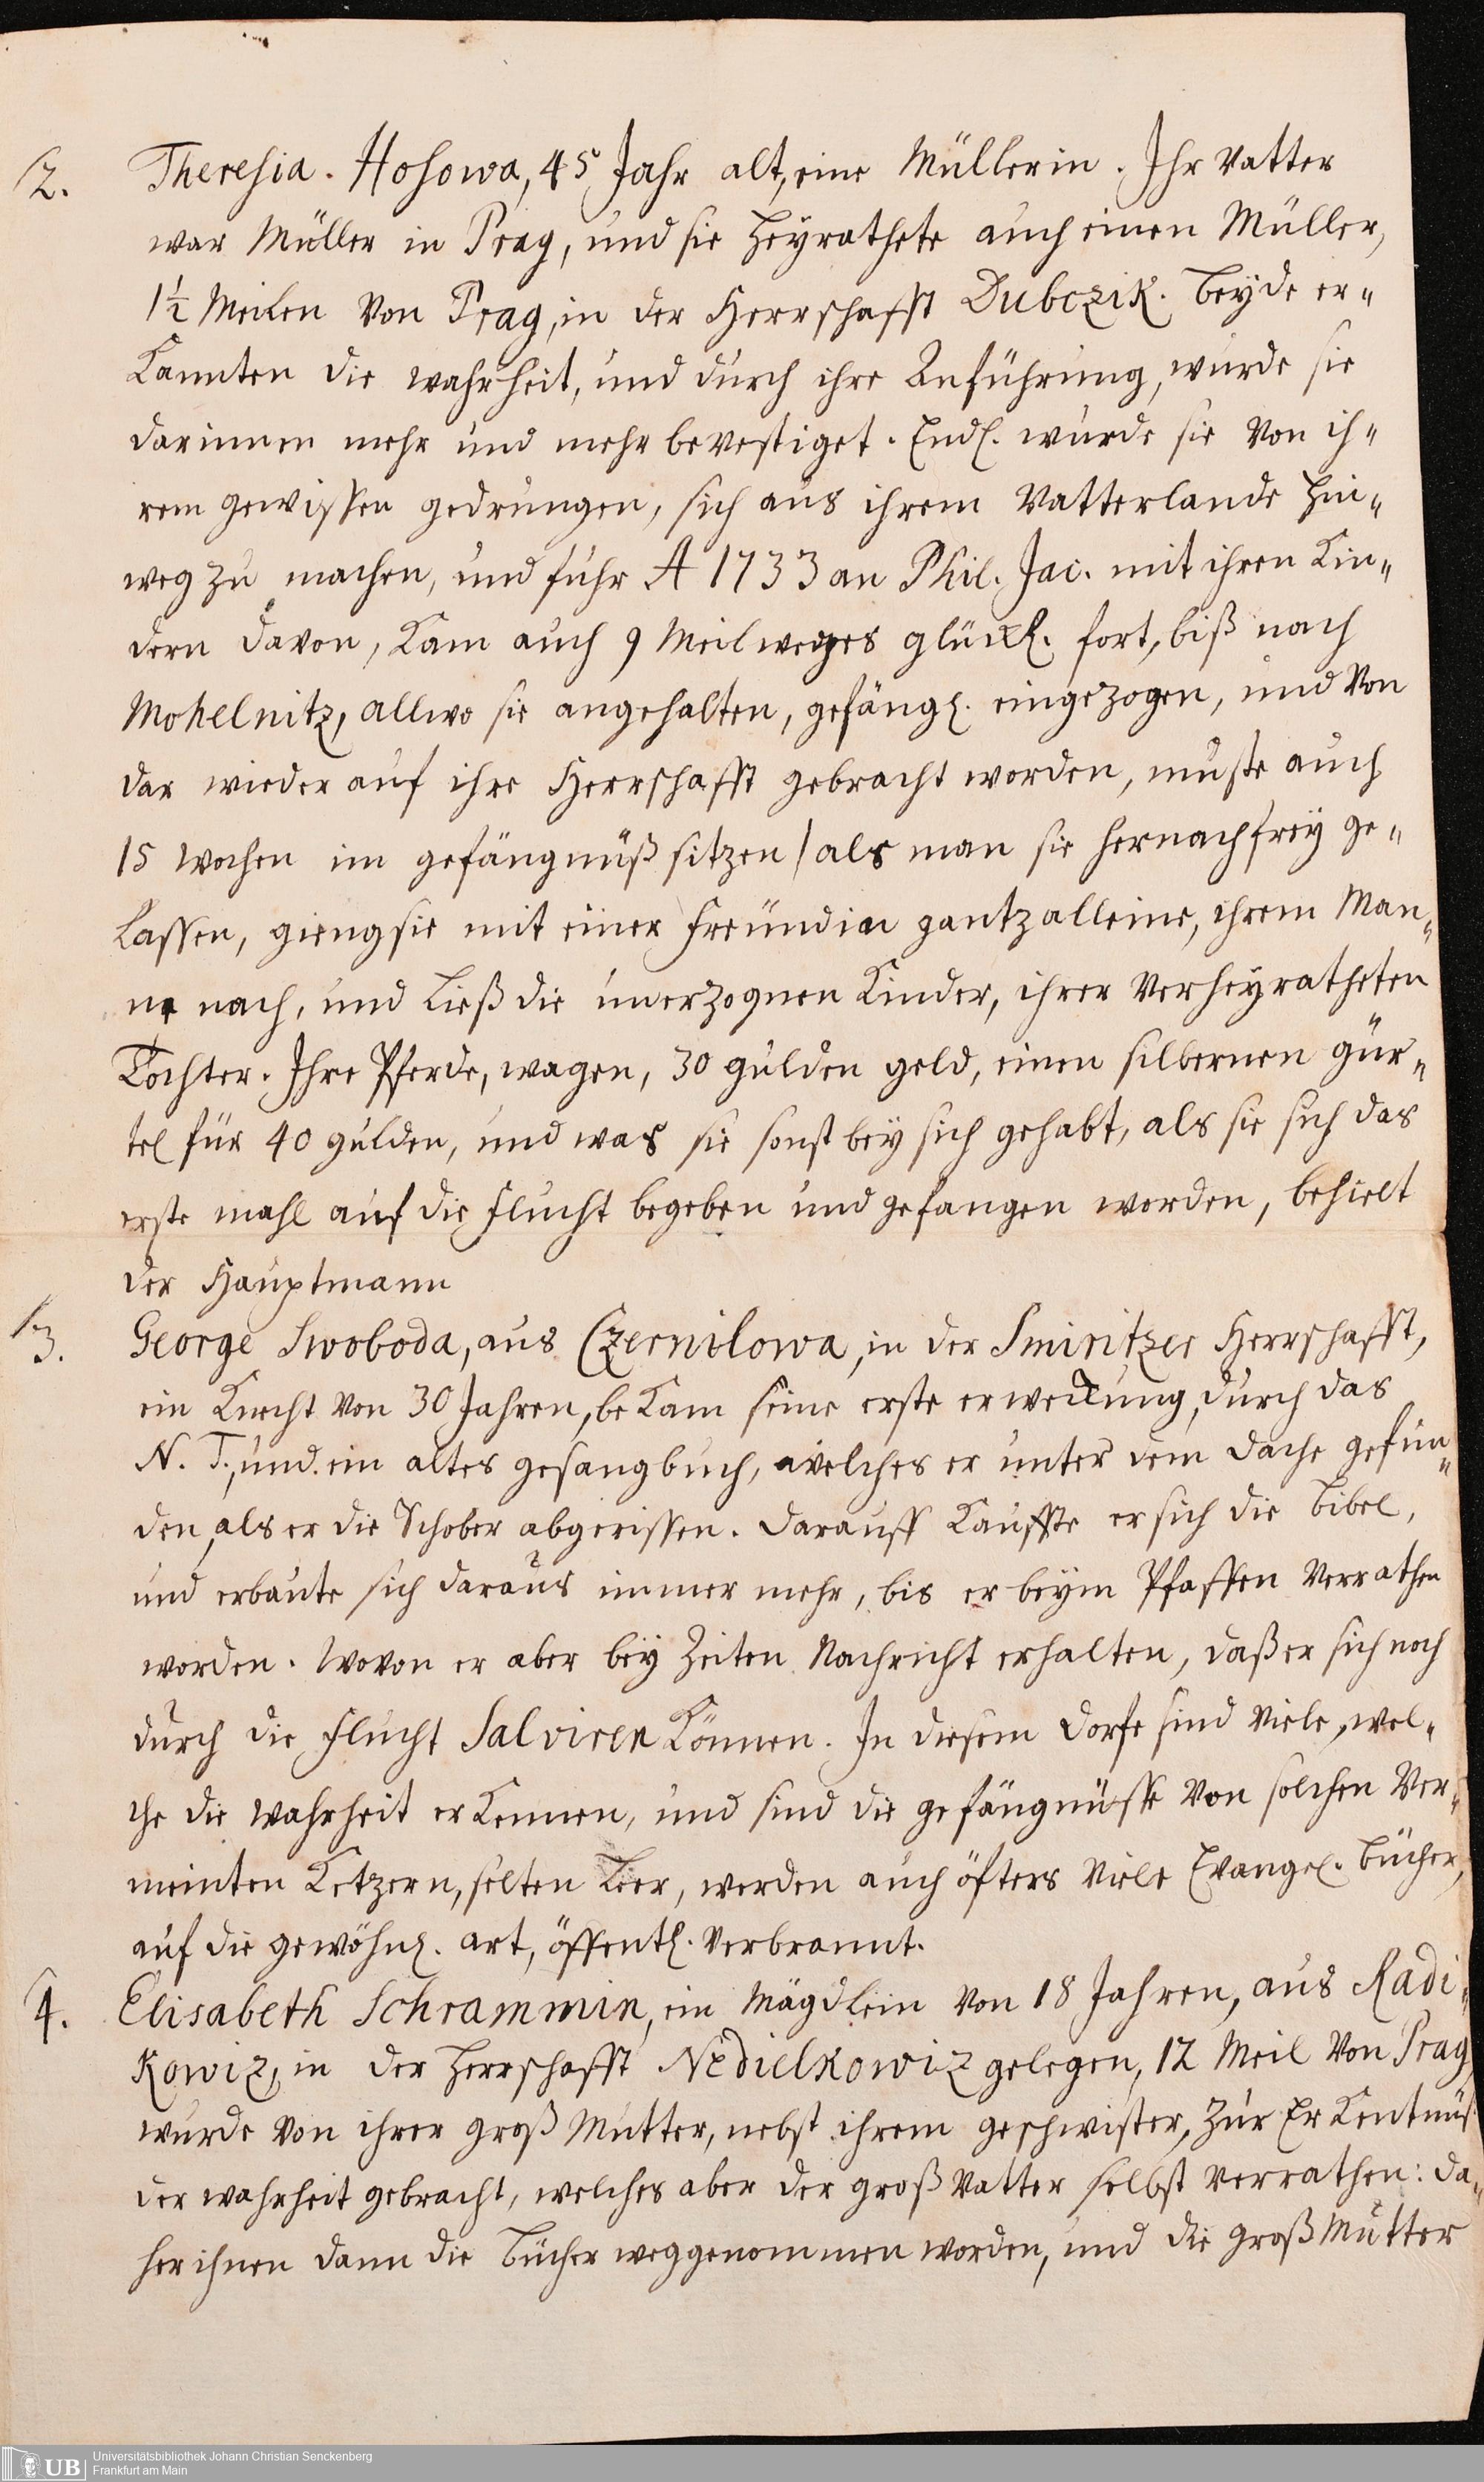 2. Theresia. Hosowa, 45 Jahr alt, eine Müllerin. Ihr Vatter
war Müller in Prag, und sie heyrathete auch einen Müller,
1½ Meilen von Prag, in der Herrschafft Dubczik. beyde er„
kannten die wahrheit, und durch ihre Anführung, wurde sie
darinnen mehr und mehr bevestiget. Endl. wurde sie von ih„
rem gewissen gedrungen, sich aus ihrem Vatterlande hin„
weg zu machen, und fuhr A 1733 an Phil. Jac. mit ihren Kin„
dern davon, kam auch 9 Meilweges glückl. fort, biß nach
Mohelnitz, allwo sie angehalten, gefängl. eingezogen, und von
dar wieder auf ihre Herrschafft gebracht worden, muste auch
15 wochen im gefängnüß sitzen / als man sie hernach frey ge„
lassen, gieng sie mit einer freundin gantz alleine, ihrem Man„
ne nach, und ließ die unerzognen Kinder, ihrer verheyratheten
Tochter. Ihre Pferde, wagen, 30 gulden geld, einen silbernen gür„
tel für 40 gulden, und was sie sonst bey sich gehabt, als sie sich das
erste mahl auf die flucht begeben und gefangen worden, behielt
der Hauptmann
3. George Swoboda, aus Czernilowa, in der Smiritzer Herrschafft,
ein Knecht von 30 Jahren, bekam seine erste erweckung, durch das
N. T., und ein altes gesangbuch, welches er unter dem dache gefun„
den, als er die Schober abgerissen. darauff kauffte er sich die bibel,
und erbaute sich daraus immer mehr, bis er beym Pfaffen verrathen
worden. Wovon er aber bey Zeiten Nachricht erhalten, daß er sich noch
durch die flucht Salviren können. In diesem dorfe sind viele, wel„
che die wahrheit erkennen, und sind die gefängnüsse von solchen ver„
meinten Ketzern, selten leer, werden auch öfters viele Evangel. bücher,
auf die gewöhnl. art, öffentl. verbrannt.
4. Elisabeth Schrammin, ein Mägdlein von 18 Jahren, aus Radi„
kowiz, in der herrschafft Nedielkowiz gelegen, 12 Meil von Prag,
wurde von ihrer groß Mutter, nebst ihrem geschwister, zur Erkentnüß
der wahrheit gebracht, welches aber der groß Vatter selbst verrathen: da„
her ihnen dann die bücher weggenommen worden, und die groß Mutter
UB Universitätsbibliothek Johann Christian Senckenberg
Frankfurt am Main